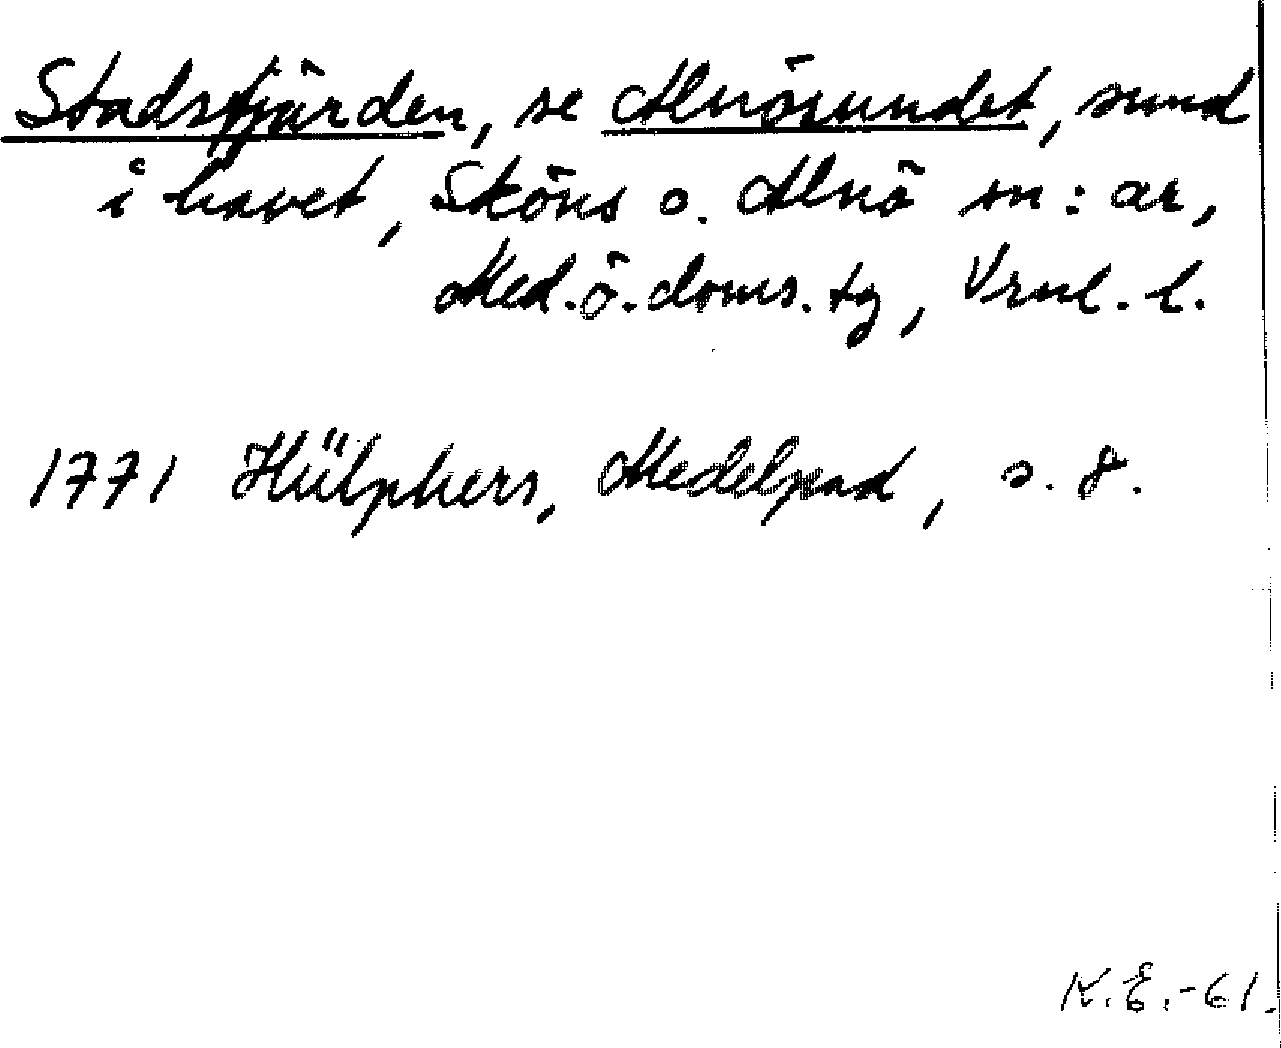 Stadsfjärden, se Alnösundet, sund
i havet, Sköns o. Alnö sn:ar,
Med.ö.doms.tg, Vrnl.l.
1771 Hülphers, Medelpad, s. 8.
K.E.-61.